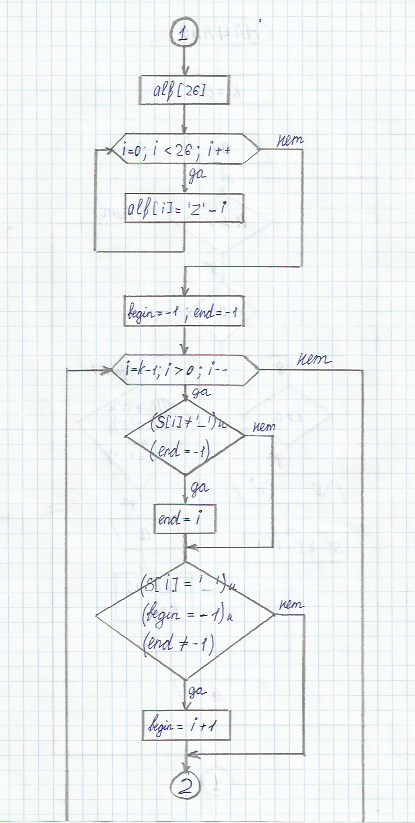 1
alf[26]
i=0; i < 26; i++
нет
да
alf[i]='Z'-i
begin=-1; end=-1
i=k-1; i>0; i--
нет
да
(S[i]≠'_')и
(end=-1)
нет
да
end=i
(S[i]='_')и
(begin=-1)и
(end≠-1)
нет
да
begin=i+1
2